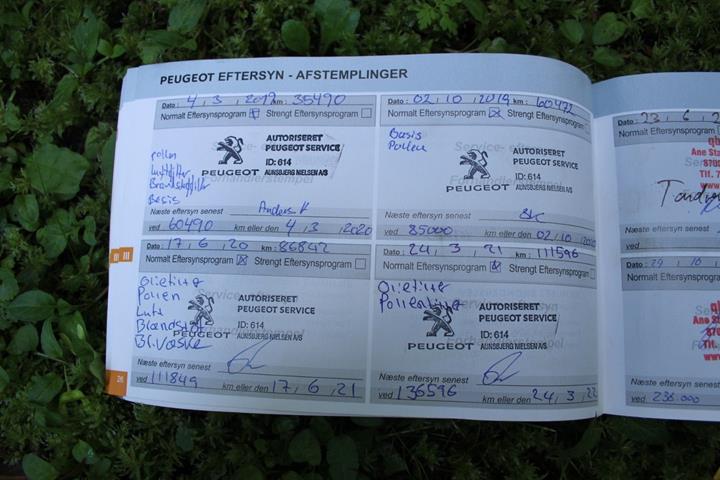 PEUGEOT EFTERSYN - AFSTEMPLINGER
Dato: 4, 3, 2019 km: 35490
Normalt Eftersynsprogram Strengt Eftersynsprogram
pollen
Luftfilter
Brændstoffilter
Basis
AUTORISERET
PEUGEOT SERVICE
ID: 614
PEUGEOT AUNSBJERG NIELSEN A/S
Næste eftersyn senest Anders
ved 60490 km eller den 4, 3, 2020
Dato: 02, 10, 2019 km: 60472
Normalt Eftersynsprogram Strengt Eftersynsprogram
Basis
Pollen
AUTORISERET
PEUGEOT SERVICE
ID: 614
PEUGEOT AUNSBJERG NIELSEN A/S
Næste eftersyn senest
ved 85000 km eller den 02, 10, 2020
Dato: 17, 6, 20 km: 86842
Normalt Eftersynsprogram Strengt Eftersynsprogram
Olietime
Pollen
Luft
Brændstof
Br.væske
AUTORISERET
PEUGEOT SERVICE
ID: 614
PEUGEOT AUNSBJERG NIELSEN A/S
Næste eftersyn senest
ved 111849 km eller den 17, 6, 21
Dato: 24, 3, 21 km: 111596
Normalt Eftersynsprogram Strengt Eftersynsprogram
AUTORISERET
PEUGEOT SERVICE
ID: 614
PEUGEOT AUNSBJERG NIELSEN A/S
Næste eftersyn senest
ved 136596 km eller den 24, 3, 22
26
Dato: 23, 6, 2
Normalt Eftersynsprogram
Ane Sta
8700
Tlf. 7
Næste eftersyn senest
ved
Dato: 29, 10
Normalt Eftersynsprogram
Ane St
870
Tlf.
Næste eftersyn senest
ved 238.000